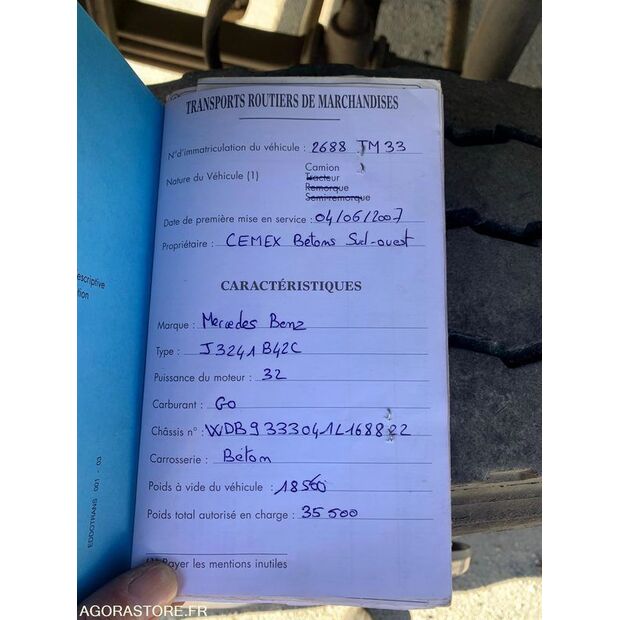 TRANSPORTS ROUTIERS DE MARCHANDISES
N° d'immatriculation du véhicule : 2688 TM 33
Nature du Véhicule (1)
Camion
Tracteur
Remorque
Semi-remorque
Date de première mise en service : 04/06/2007
Propriétaire : CEMEX Betons Sud-ouest
CARACTÉRISTIQUES
Marque : Mercedes Benz
Type : J3241B42C
Puissance du moteur : 32
Carburant : GO
Châssis n° : WDB9333041L168822
Carrosserie : Béton
Poids à vide du véhicule : 18560
Poids total autorisé en charge : 35 500
Rayer les mentions inutiles
escriptive
tion
EDDOTRANS 001 - 03
AGORASTORE.FR